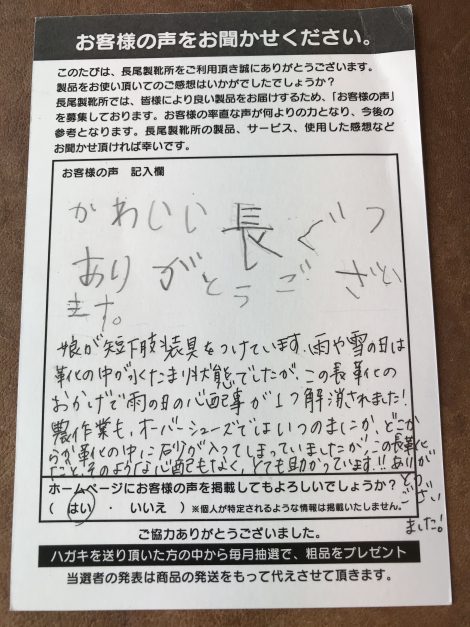 お客様の声をお聞かせください。
このたびは、長尾製靴所をご利用頂き誠にありがとうございます。
製品をお使い頂いてのご感想はいかがでしたでしょうか?
長尾製靴所では、皆様により良い製品をお届けするため、「お客様の声」
を募集しております。お客様の率直な声が何よりの力となり、今後の
参考となります。長尾製靴所の製品、サービス、使用した感想など
お聞かせ頂ければ幸いです。
お客様の声 記入欄
かわいい長ぐつ
ありがとうござい
ます。
娘が短下肢装具をつけています。雨や雪の日は
靴の中が水たまり状態でしたが、この長靴の
おかげで雨の日の心配事が1つ解消されました!
農作業も、オーバーシューズではいつのまにか、どこか
らか靴の中に石りが入ってしまっていましたが、この長靴
だと、そのような心配もなく、とても助かっています!!ありが
とう
ござい
ました!
ホームページにお客様の声を掲載してもよろしいでしょうか?
( はい ・ いいえ ) ※個人が特定されるような情報は掲載いたしません。
ご協力ありがとうございました。
ハガキを送り頂いた方の中から毎月抽選で、粗品をプレゼント
当選者の発表は商品の発送をもって代えさせて頂きます。